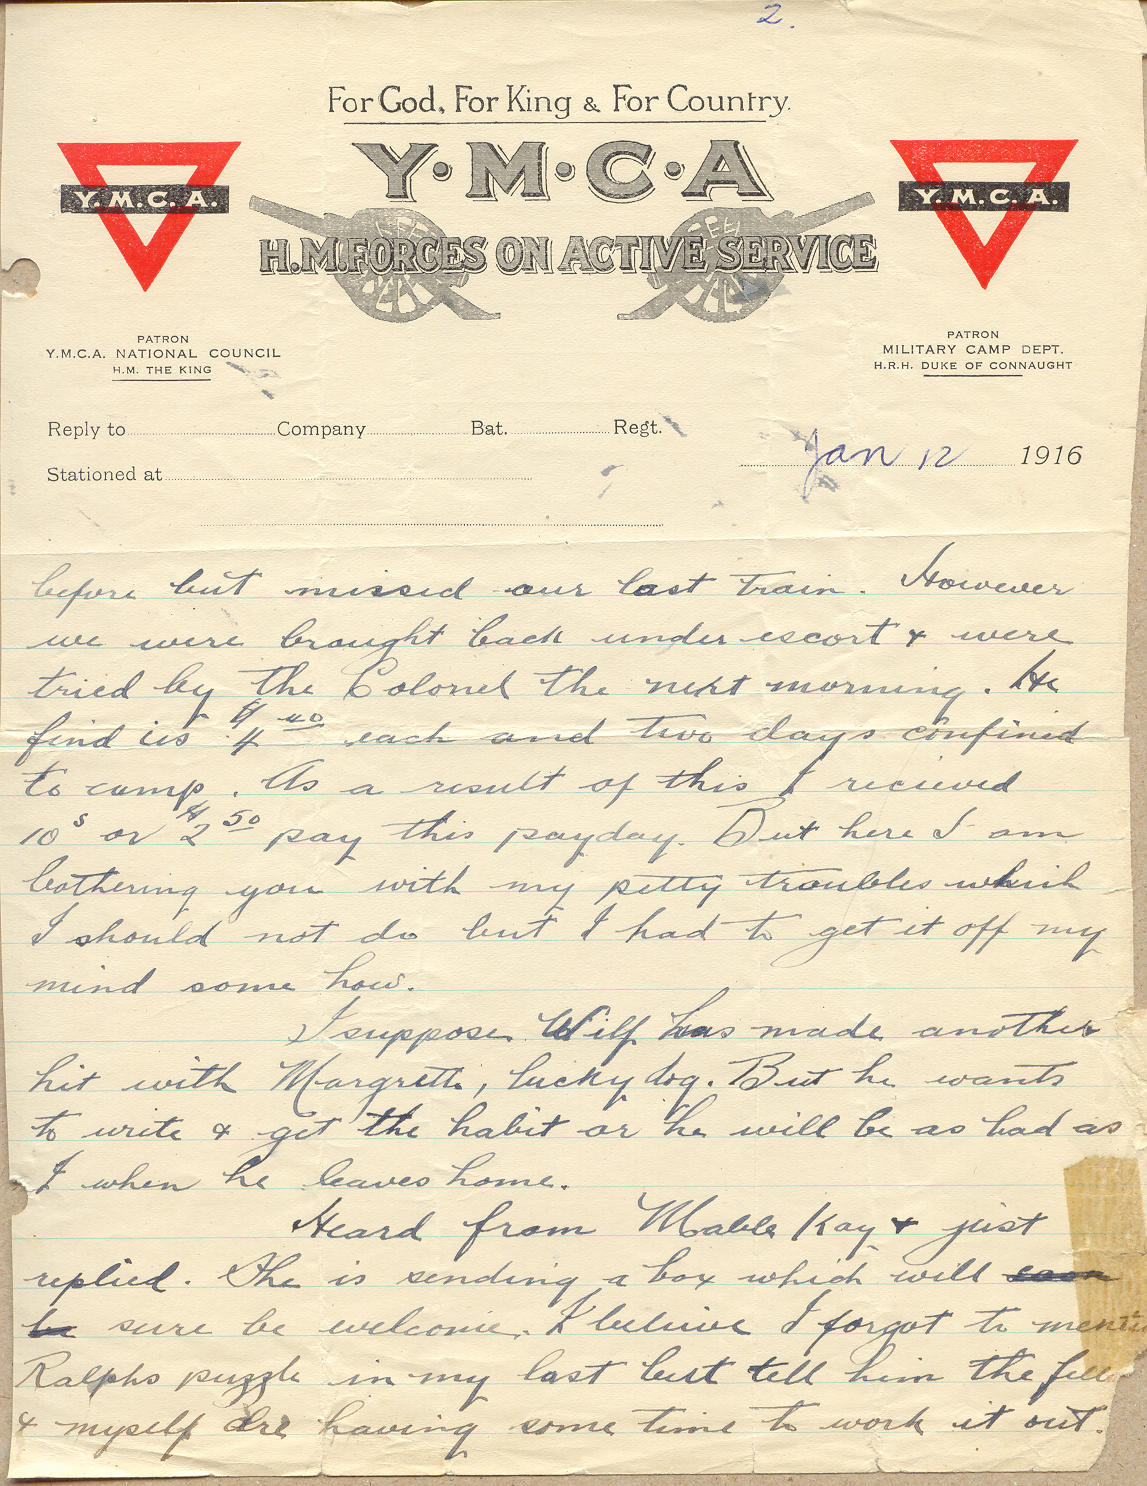 2.
For God, For King & For Country.
Y·M·C·A
Y.M.C.A.
Y.M.C.A.
H.M. FORCES ON ACTIVE SERVICE
PATRON
Y.M.C.A. NATIONAL COUNCIL
H.M. THE KING
PATRON
MILITARY CAMP DEPT.
H.R.H. DUKE OF CONNAUGHT
Reply to Company Bat. Regt.
Jan 12 1916
Stationed at
before but missed our last train. However
we were braught back under escort & were
tried by the Colonel the next morning. He
find us $4.40 each and two days confined
to camp. As a result of this I recieved
10s or $2.50 pay this payday. But here I am
bothering you with my petty troubles which
I should not do but I had to get it off my
mind some how.
I suppose Wilf has made another
hit with Margrett, lucky dog. But he wants
to write & get the habit or he will be as bad as
I when he leaves home.
Heard from Mable Kay & just
replied. She is sending a box which will soon
be sure be welcome. I believe I forgot to mention
Ralphs puzzle in my last but tell him the
& myself are having some time to work it out.